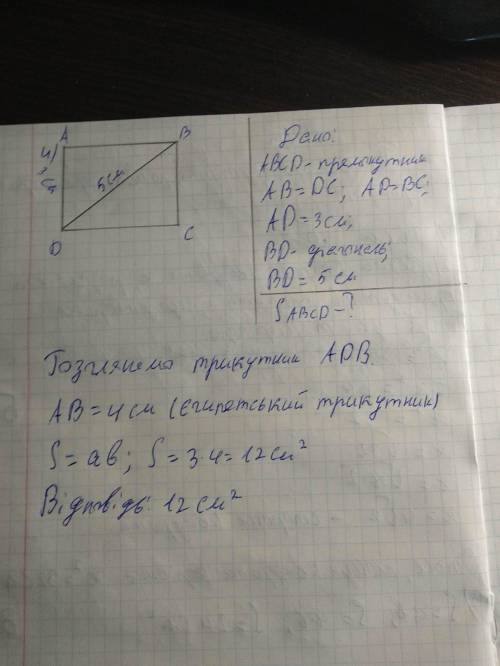 A
B
5см
D
C
Дано:
ABCD - прямокутник
AB = DC; AD = BC;
AD = 3см;
BD - діагональ;
BD = 5 см
S ABCD - ?
Розглянемо трикутник ADB.
AB = 4 см (Єгипетський трикутник)
S = ab; S = 3·4 = 12 см²
Відповідь: 12 см²